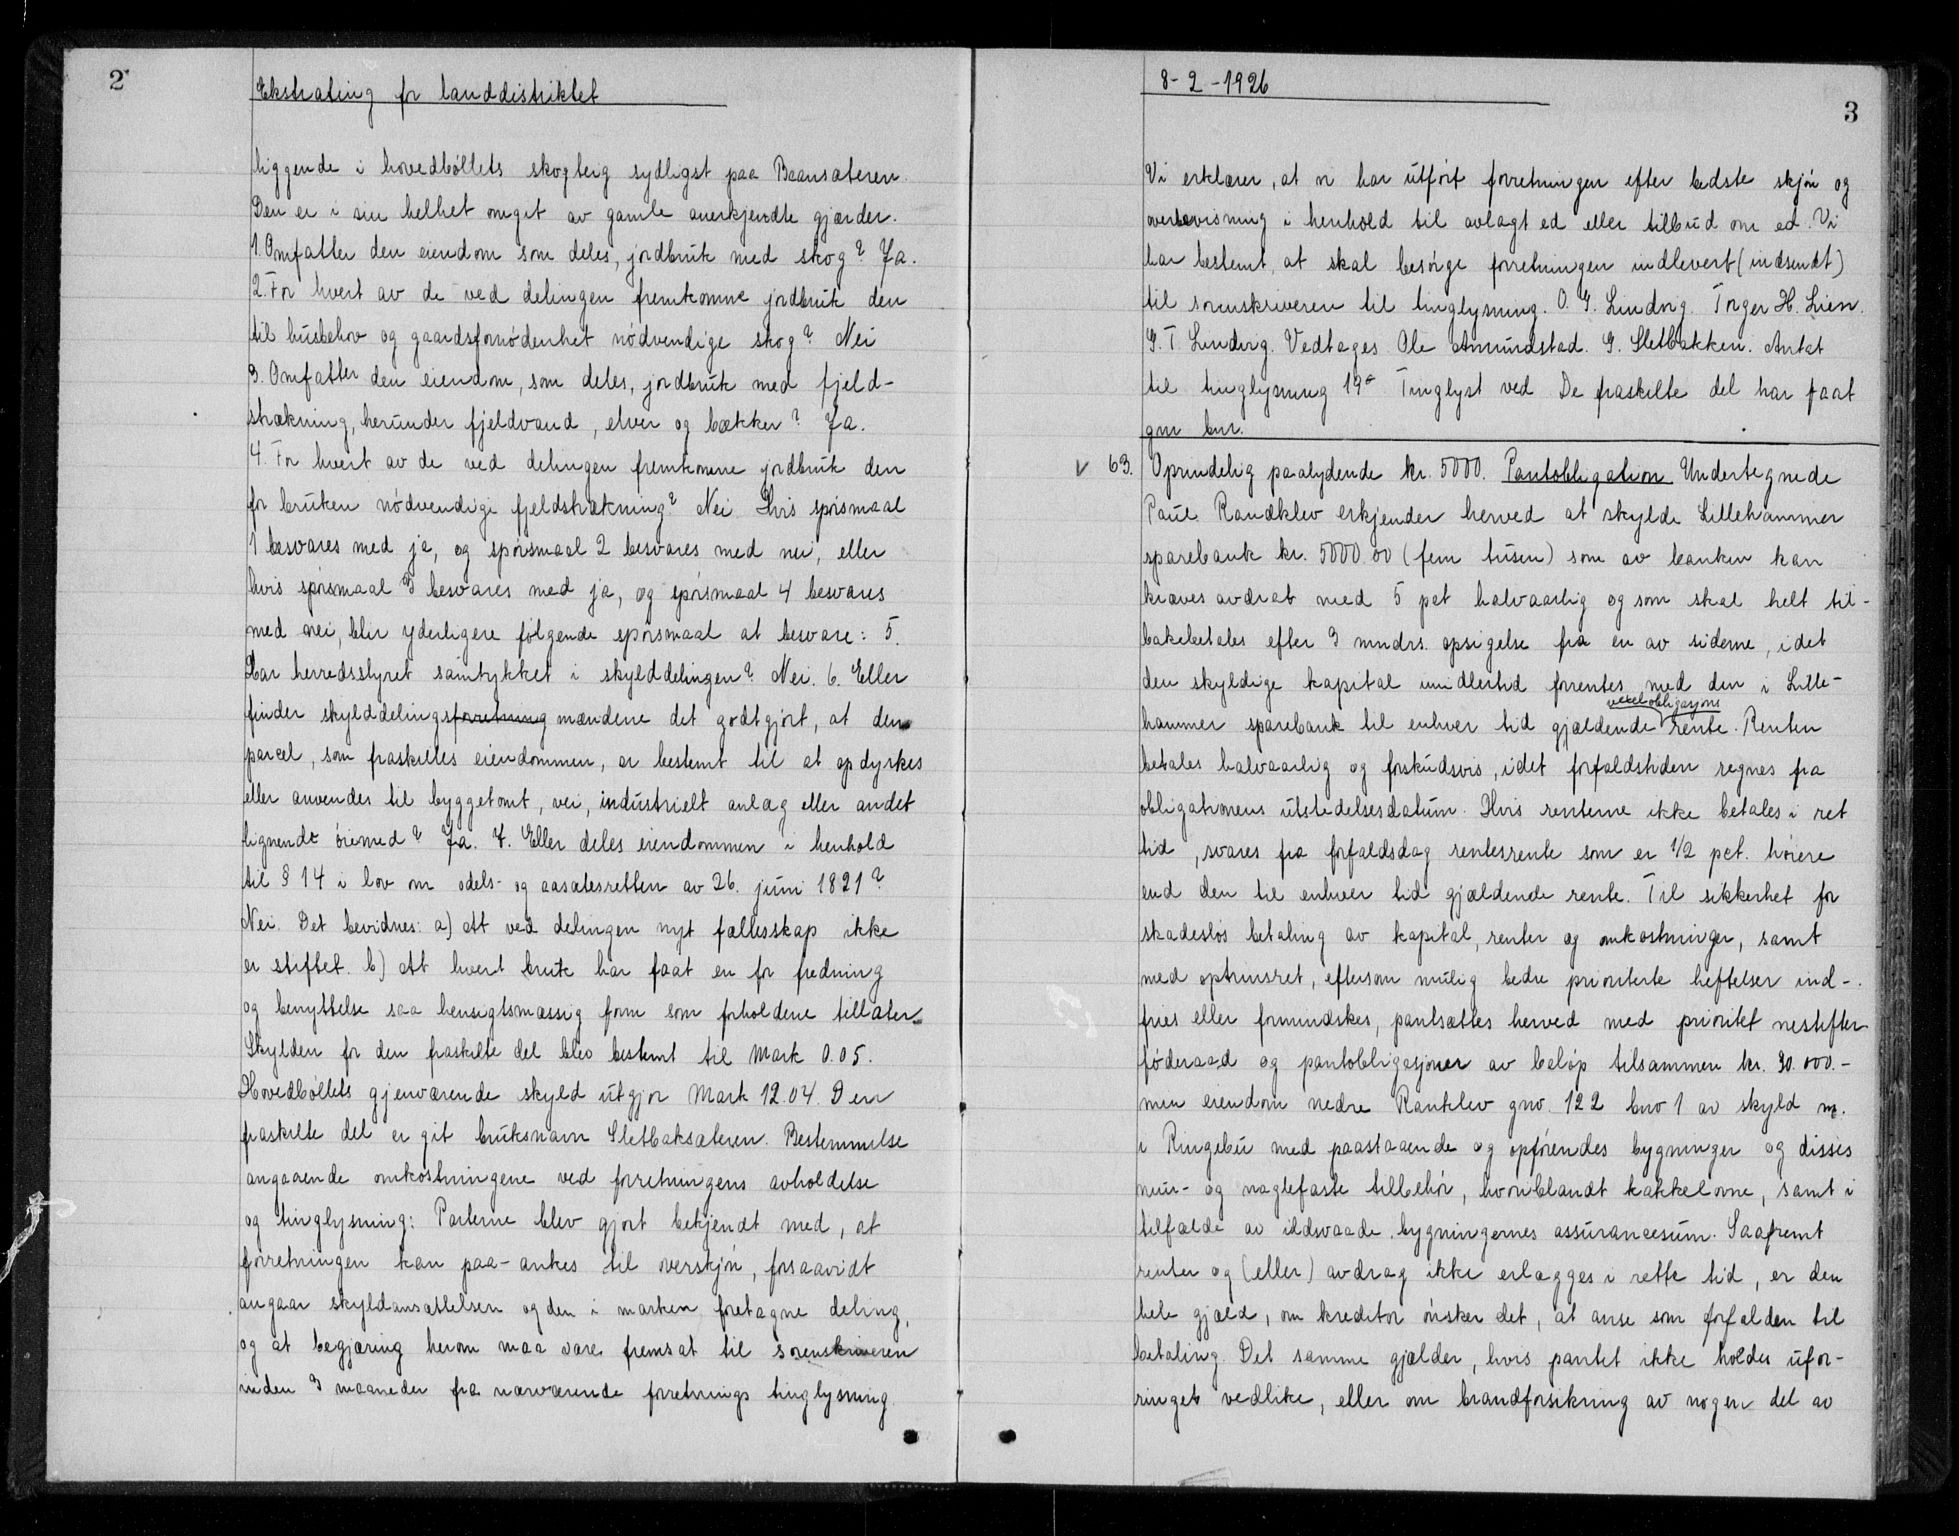 2
Ekstrating for landdistriktet
liggende i hovedböllets skogteig sydligst paa Baansæteren.
Den er i sin helhet omgit av gamle anerkjendte gjærder.
1. Omfatter den eiendom som deles, jordbruk med skog? Ja.
2. For hvert av de ved delingen fremkomne jordbruk den
til husbehov og gaardsfornödenhet nödvendige skog? Nei
3. Omfatter den eiendom, som deles, jordbruk med fjeld-
strækning, herunder fjeldvand, elver og bækker? Ja.
4. For hvert av de ved delingen fremkomne jordbruk den
for bruken nödvendige fjeldstrækning? Nei. Hvis spörsmaal
1 besvares med ja, og spörsmaal 2 besvares med nei, eller
hvis spörsmaal 3 besvares med ja, og spörsmaal 4 besvares
med nei, blir yderligere fölgende spörsmaal at besvare: 5.
Har herredsstyret samtykket i skylddelingen? Nei. 6. Eller
finder skylddelingsforretning mændene det godtgjort, at den
parcel, som fraskilles eiendommen, er bestemt til at opdyrkes
eller anvendes til byggetomt, vei, industrielt anlæg eller andet
lignende öiemed? Ja. 7. Eller deles eiendommen i henhold
til § 14 i lov om odels- og aasætesretten av 26. juni 1821?
Nei. Det bevidnes: a) Att ved delingen nyt fællesskap ikke
er stiftet. b) Att hvert bruk har faat en for fredning
og benyttelse saa hensigtsmæssig form som forholdene tillater.
Skylden for den fraskilte del blev bestemt til Mark 0.05.
Hovedböllets gjenværende skyld utgjör Mark 12.04. Den
fraskilte del er git bruksnavn Sletbaksæteren. Bestemmelse
angaaende omkostningene ved forretningens avholdelse
og tinglysning: Parterne blev gjort bekjendt med, at
forretningen kan paa-ankes til overskjön, forsaavidt
angaar skyldansættelsen og den i marken foretagne deling,
og at begjæring herom maa være fremsat til sorenskriveren
inden 3 maaneder fra nærværende forretnings tinglysning.
8-2-1926
3
Vi erklærer, at vi har utfört forretningen efter bedste skjön og
overbevisning i henhold til avlagt ed eller tilbud om ed. Vi
har bestemt, at skal besörge forretningen indlevert (indsendt)
til sorenskriveren til tinglysning. O. G. Lindorg. Torger H. Lien.
G. T. Linderg. Vedtages Ole Amundstad. G. Sletbakken. Antat
til tinglysning 19 Tinglyst ved De fraskilte del har faat
gnr bnr.
V 63. Oprindelig paalydende kr. 5000. Pantobligation Undertegnede
Paul Randklev erkjender herved at skylde Lillehammer
sparebank kr. 5000.00 (fem tusen) som av banken kan
kræves avdrat med 5 pct halvaarlig og som skal helt til-
bakebetales efter 3 mndrs. opsigelse fra en av siderne, idet
den skyldige kapital imidlertid forrentes med den i Lille-
vexelobligasjons
hammer sparebank til enhver tid gjældende rente. Renten
betales halvaarlig og forskudsvis, idet forfaldstiden regnes fra
obligationens utstedelsesdatum. Hvis renterne ikke betales i ret
tid, svares fra forfaldsdag rentesrente som er 1/2 pct. höiere
end den til enhver tid gjældende rente. Til sikkerhet for
skadeslös betaling av kapital, renter og omkostninger, samt
med optrinsret, eftersom mulig bedre prioriterte heftelser ind-
fries eller formindskes, pantsættes herved med prioritet næstefter
föderaad og pantobligasjoner av belöp tilsammen kr. 30.000.-
min eiendom nedre Randklev gno. 122 bno 1 av skyld m.
i Ringebu med paastaaende og opförendes bygninger og disses
mur- og naglefaste tilbehör, hvoriblandt kakkelovne, samt i
tilfælde av ildsvaade bygningernes assurancesum. Saafremt
renter og (eller) avdrag ikke erlægges i rette tid, er den
hele gjæld, om kreditor önsker det, at anse som forfalden til
betaling. Det samme gjælder, hvis pantet ikke holdes ufor-
ringet vedlike, eller om brandforsikring av nogen del av